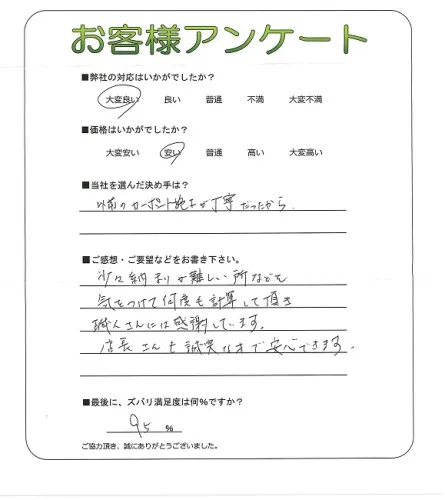 お客様アンケート
■弊社の対応はいかがでしたか？
大変良い 良い 普通 不満 大変不満
■価格はいかがでしたか？
大変安い 安い 普通 高い 大変高い
■当社を選んだ決め手は？
以前のカーポート施工が丁寧だったから
■ご感想・ご要望などをお書き下さい。
少々納まりが難しい所なども
気をつけて何度も計算して頂き
職人さんには感謝しています。
店長さんも誠実なので安心できます。
■最後に、ズバリ満足度は何％ですか？
95 ％
ご協力頂き、誠にありがとうございました。